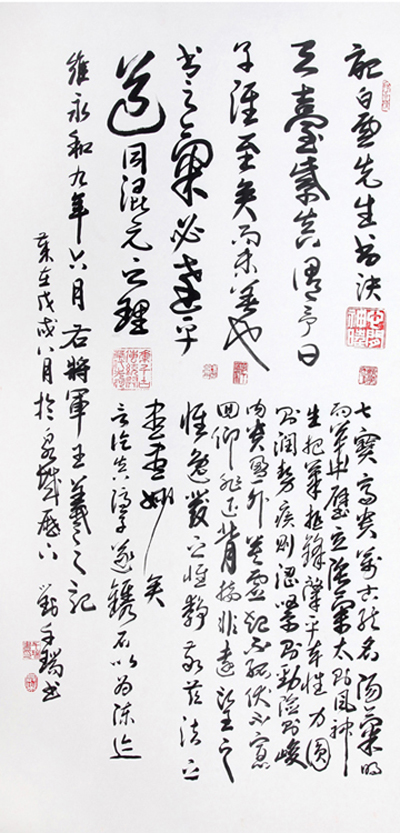 記白雲先生書訣
天臺紫真謂予曰
子雖至矣而未善也
書之氣必達乎
道同混元之理
七寶齊貴萬古能名陽氣明
而華壁立陰氣太則風神
生把筆抵鋒肇乎本性力圓
則潤勢疾則澀緊則勁險則峻
內貴盈外貴虛起不孤伏不寡
回仰非近背接非遠望之
惟逸發之惟靜敬茲法也
書盡妙矣
言訖真隱子遂鐫石以為陳跡
維永和九年六月右將軍王羲之記
歲在戊戌八月於泉城歷下